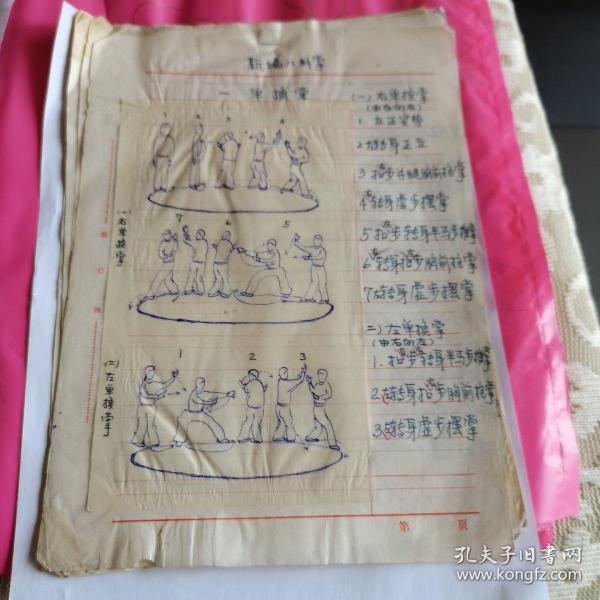 新编八卦掌
一 单换掌
(一) 右单换掌
(由左向右)
1 立正姿势
2 左转身正立
4 右转身虚步摆掌
5 扣步转身半马步撑掌
7 左转身虚步摆掌
二) 左单换掌
(由右向左)
1. 扣步转身半马步撑掌
3. 右转身虚步摆掌
(一) 右单换掌
(二) 左单换掌
1 2 3 4
7 6 5
1 2 3
装 订 线
第 頁
孔夫子旧书网
www.kongfz.com